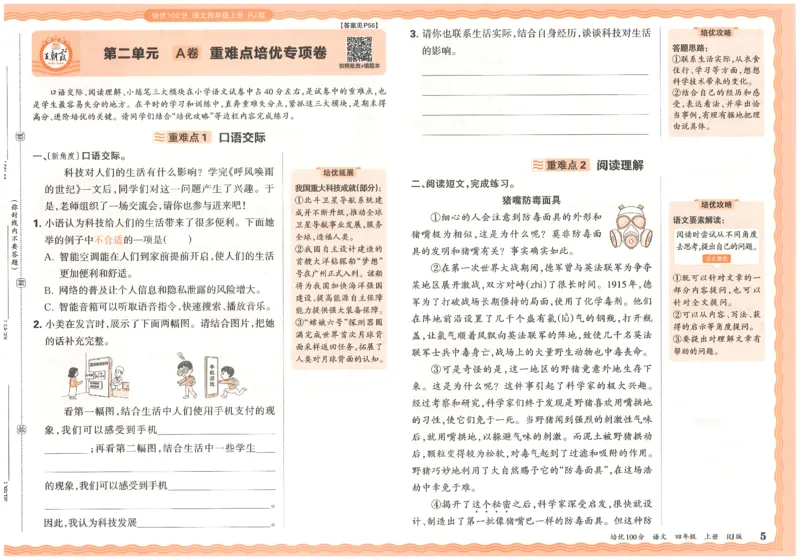 培优100分 语文四年级上册 RJ版
【答案见P56】
王朝霞
第二单元 A卷 重难点培优专项卷
拍照批改+错题本
口语交际、阅读理解、小练笔三大模块在小学语文试卷中占40分左右,是试卷中的重难点,也
是学生最容易失分的地方。在平时的学习和训练中,直奔重难失分点,紧抓这三大模块,是期末得
高分、进阶培优的关键。请同学们结合“培优攻略”等边栏内容完成练习。
重难点1 口语交际
一、〔新角度〕口语交际。
科技对人们的生活有什么影响？学完《呼风唤雨
的世纪》一文后,同学们对这一问题产生了兴趣。于
是,老师组织了一场交流会,请你也参与进来吧！
1. 小语认为科技给人们的生活带来了很多便利。下面她
举的例子中不合适的一项是( )
A. 智能空调能在人们到家前提前开启,使人们的生活
更加便利和舒适。
B. 网络的普及让个人信息和隐私泄露的风险增大。
C. 智能音箱可以听取语音指令,快速搜索、播放音乐。
2. 小美在发言时,展示了下面两幅图。请结合图片,把她
的话补充完整。
手机游戏
看第一幅图,结合生活中人们使用手机支付的现
象,我们可以感受到手机
;再看第二幅图,结合生活中一些学生
的现象,我们可以感受到手机
。
因此,我认为科技发展
。
培优拓展
我国重大科技成就(部分):
①北斗卫星导航系统建
成并不断升级,推动全球
卫星导航事业发展,服务
全球,造福人类。
②我国自主设计建造的
首艘大洋钻探船“梦想”
号在广州正式入列。该船
将为我国加快海洋强国
建设,提高能源自主保障
能力提供强大装备保障。
③“嫦娥六号”探测器圆
满完成世界首次月球背
面采样返回任务,拓展了
人类对月球背面的认知。
(弥封线内不要答题)
3. 请你也联系生活实际,结合自身经历,谈谈科技对生活
的影响。
培优攻略
答题思路:
①联系生活实际,从衣食
住行、学习等方面,想想
科学技术带来的变化。
②结合自己的经历和感
受,表达看法,并举出恰
当事例,有理有据地把理
由说具体。
重难点2 阅读理解
二、阅读短文,完成练习。
猪嘴防毒面具
①细心的人会注意到防毒面具的外形和
猪嘴极为相似,这是为什么呢？莫非防毒面
具的发明和猪嘴有关？事实确实如此。
②在第一次世界大战期间,德军曾与英法联军为争夺
某地区展开激战,双方对峙(zhì)了很长时间。1915年,德
军为了打破战场长期僵持的局面,使用了化学毒剂。他们
在阵地前沿设置了几千个盛有氯(lǜ)气的钢瓶,打开瓶
盖,让氯气顺着风飘向英法联军的阵地,致使几千名英法
联军士兵中毒身亡,战场上的大量野生动物也中毒丧命。
③可是奇怪的是,这一地区的野猪竟意外地生存下
来。这是为什么呢？这件事引起了科学家的极大兴趣。
经过考察和研究,科学家们终于发现是野猪喜欢用嘴拱地
的习性,使它们免于一死。当野猪闻到强烈的刺激性气味
后,就用嘴拱地,以躲避气味的刺激。而泥土被野猪拱动
后,颗粒变得较为松软,对毒气起到了过滤和吸附的作用。
野猪巧妙地利用了大自然赐予它的“防毒面具”,在这场浩
劫中幸免于难。
④揭开了这个秘密之后,科学家深受启发,很快就设
计、制造出了第一批像猪嘴巴一样的防毒面具。但这种防
培优攻略
语文要素解读:
阅读时尝试从不同角度
去思考,提出自己的问题。
语文要素
①既可以针对文章的一
部分内容提问,也可以
针对全文提问。
②可以从内容、写法、获
得的启示等角度提问。
③要提出对理解文章有
帮助的问题。
培优100分 语文 四年级 上册 RJ版 5